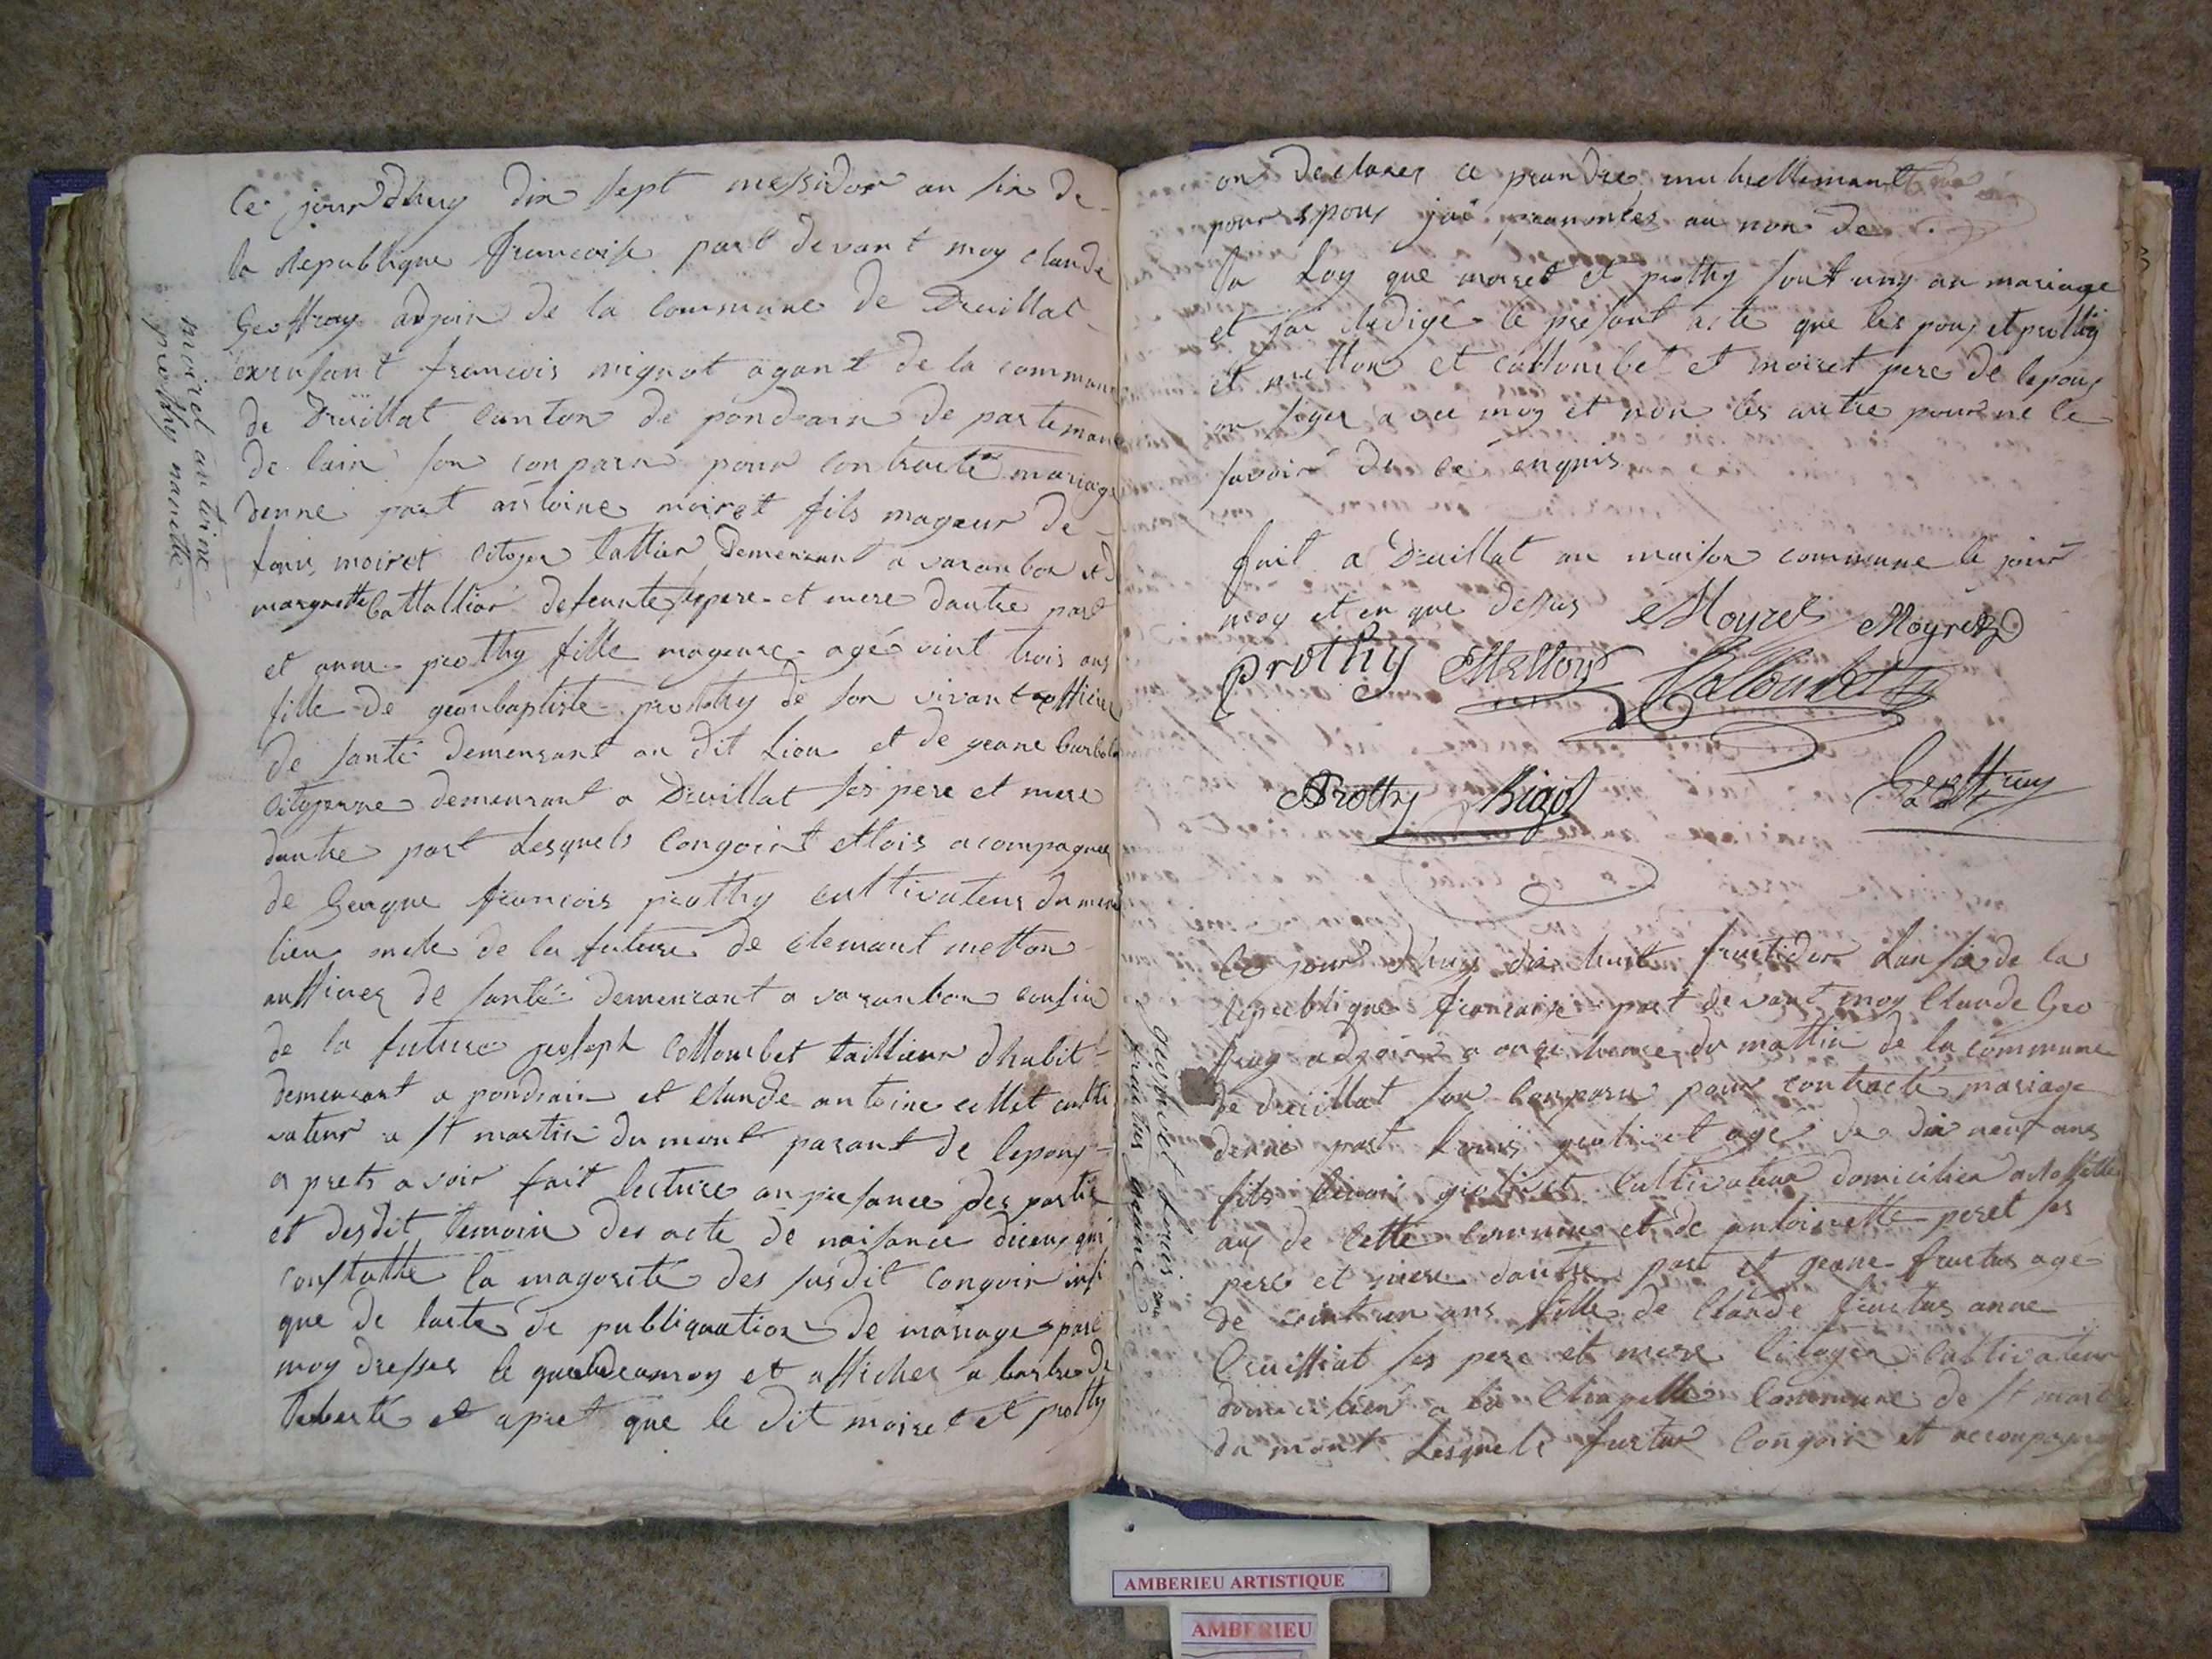 Ce jourdhuy dix sept messidor an six de
la Republique francoise part devant moy claude
Geoffray adjoin de la Commune de Druillat
francois mignot agant de la commune
de Druillat canton de pondain de partemant
de lain son conparu pour contracté mariage
denne part antoine moiret fils mageur de
moiret citoyen demeurant a varanbon et d
margueritte defeunte pere et mere dautre part
et anne prothy fille mageure agé vint trois ans
fille de geanbaptiste prothy de son vivant officier
de santé demeurant au dit Lieu et de geane
citoyenne demeurant a Druillat ses pere et mere
dautre part Lesquels congoint acompagner
de francois prothy cultivateur du meme
lieu de la future de clemant metton
auffiver de santé demeurant a varanbon cousin
de la future goseph Collombet taillieur dhabit
demeurant a pondain et Claude antoine collet culti
vateur a St martin du mont parant de lepoux
a prets avoir fait lecture an presance des partie
et desdit temoin des acte de naisance diceux qui
constatte la magorité des susdit congoin insi
que de lacte de publiquation de mariage par
moy dresser le et afficher a larbre de
liberté et apret que le dit moiret et prothy
moiret antoine
prothy nanette
on declarer ce prandre mutuellemant
pour epoux jai prononcer au non de
la Loy que moiret et prothy sont uny an mariage
et jai redigé le presant acte que les poux et prothy
et metton et collombet et moiret pere de lepoux
on signer avec moy et non les autre pour ne le
savoir de ce enquis
fait a Druillat an maison commune le jour
moy et an que dessus Moyret Moyret
prothy Metton Collombet
Prothy Geoffray
Ce jourdhuy dix huit fructidor Lan six de la
republique francaise part devant moy Claude Geo
fray adjoin a onze heure du mattin de la commune
de druillat son conparu pour contracté mariage
denne part Louis agé de dix neuf ans
fils cultivateur domicilier
de cette commune et de antoinette peret ses
pere et mere dautre part et geane fructus age
de vint un ans fille de Claude fructus anne
Cruiffiat ses pere et mere citoyen Cultivateur
domicilien a la Chapelle Commune de St mart
du mont Lesquels futur congoin et acompagner
louis
fructus geanne
AMBERIEU ARTISTIQUE
AMBERIEU